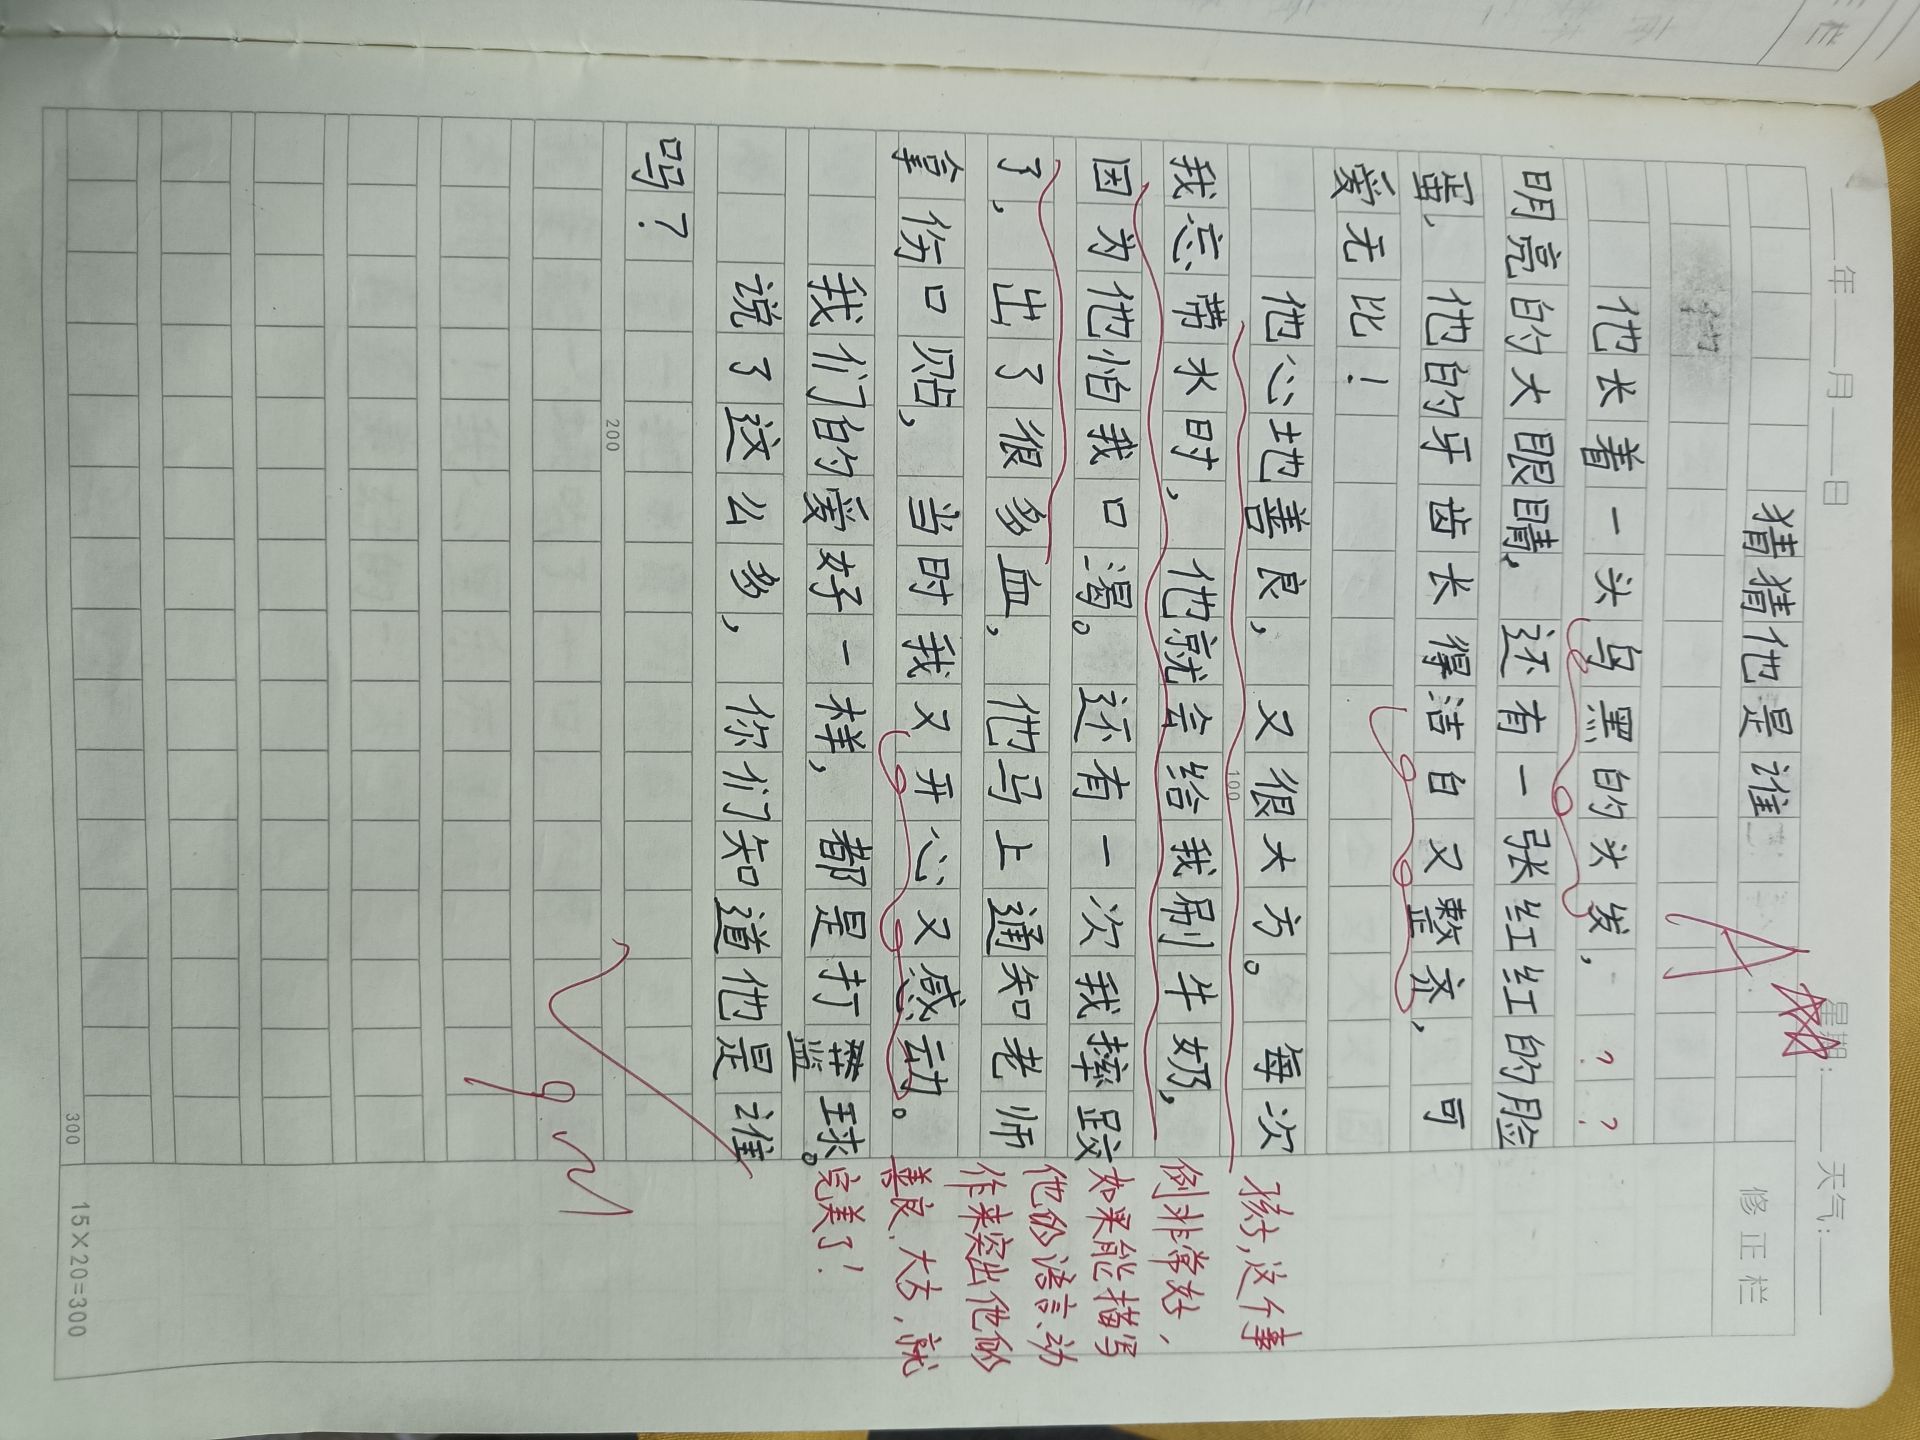 年 月 日 星期: 天气:
猜猜他是谁
修正栏
他长着一头乌黑的头发,??
明亮的大眼睛,还有一张红红的脸
蛋,他的牙齿长得洁白又整齐,可
爱无比!
他心地善良,又很大方。每次
100
我忘带水时,他就会给我刷牛奶,
因为他怕我口渴。还有一次我摔跤
了,出了很多血,他马上通知老师
拿伤口贴,当时我又开心又感动。
我们的爱好一样,都是打篮球。
说了这么多,你们知道他是谁
吗?
200
300
15×20=300
A
孩子,这个事
例非常好,
如果能描写
他的语言、动
作来突出他的
善良、大方,就
完美了!